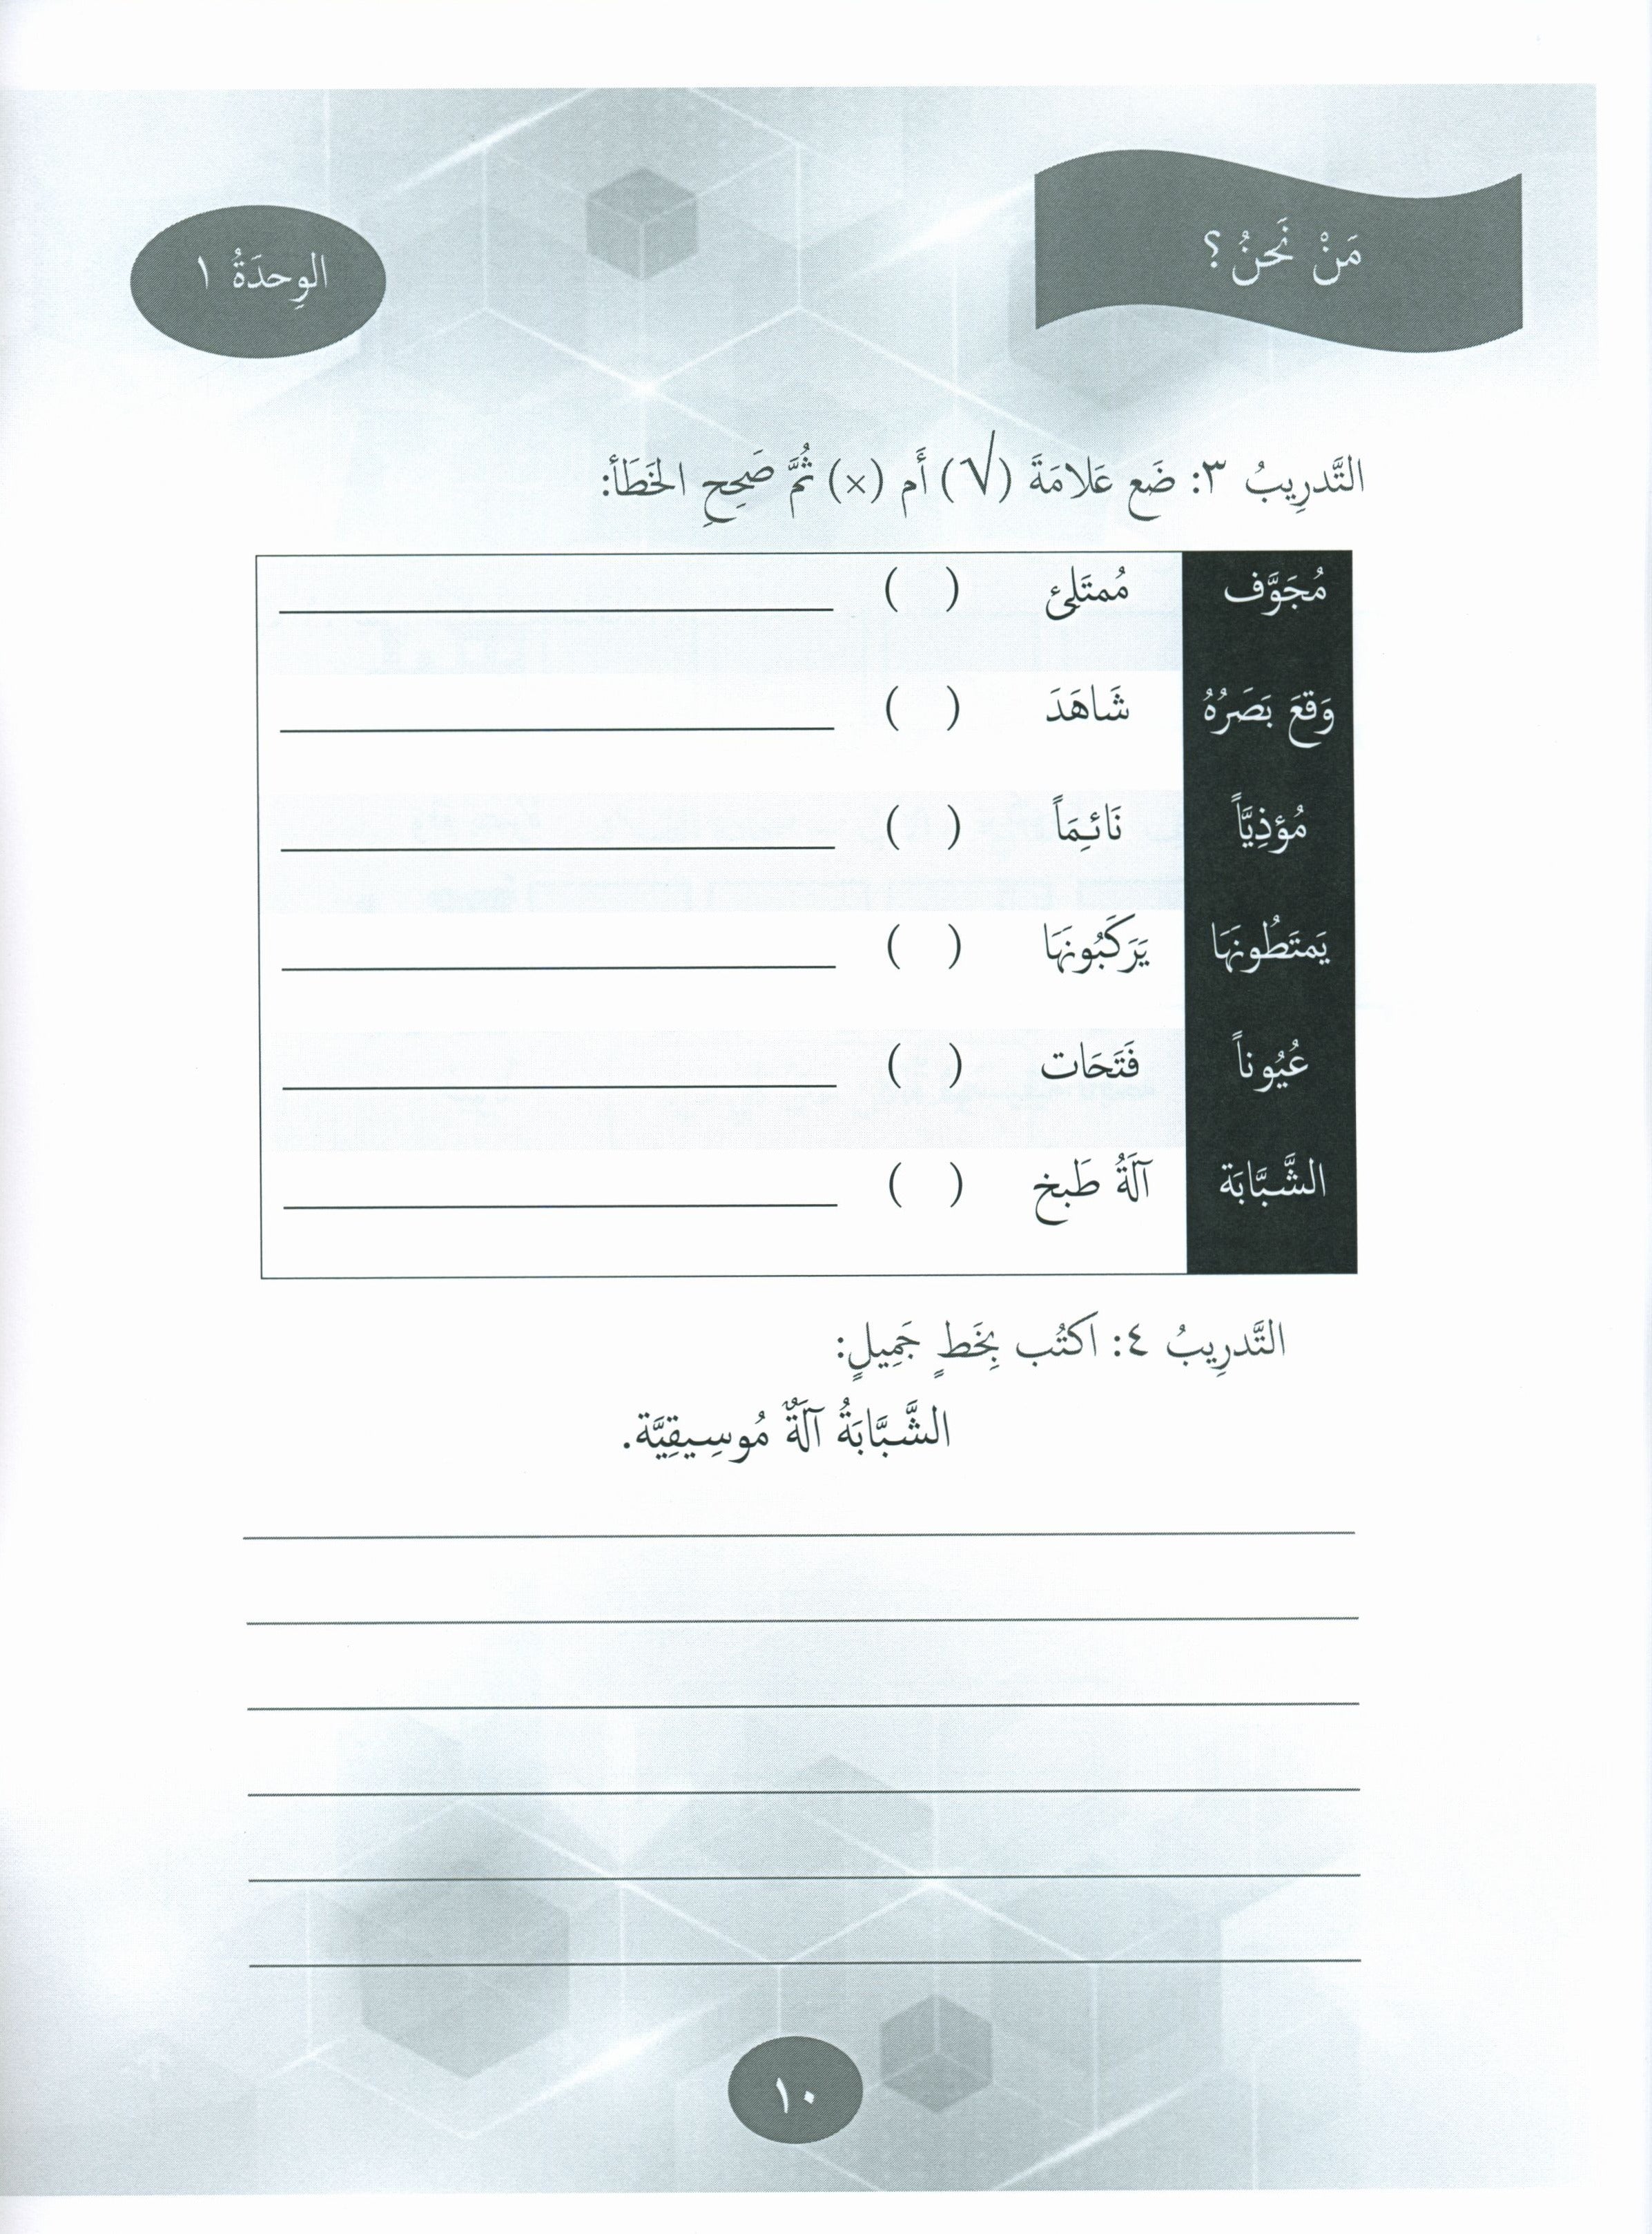 مَنْ نَحنُ؟
الوِحدَةُ ١
التَّدرِيبُ ٣: ضَع عَلامَةَ (√) أَم (×) ثُمَّ صَحِحِ الخَطَأ:
مُجَوَّف مُمتَلِئ ( )
وَقعَ بَصَرُهُ شَاهَدَ ( )
مُؤذِيَّاً نَائِمَاً ( )
يَمتَطُونَهَا يَرَكَبُونَهَا ( )
عُيُوناً فَتَحَات ( )
الشَّبَّابَة آلَةُ طَبخ ( )
التَّدرِيبُ ٤: اكتُب بِخَطٍ جَمِيلٍ:
الشَّبَّابَةُ آلَةٌ مُوسِيقِيَّة.
١٠